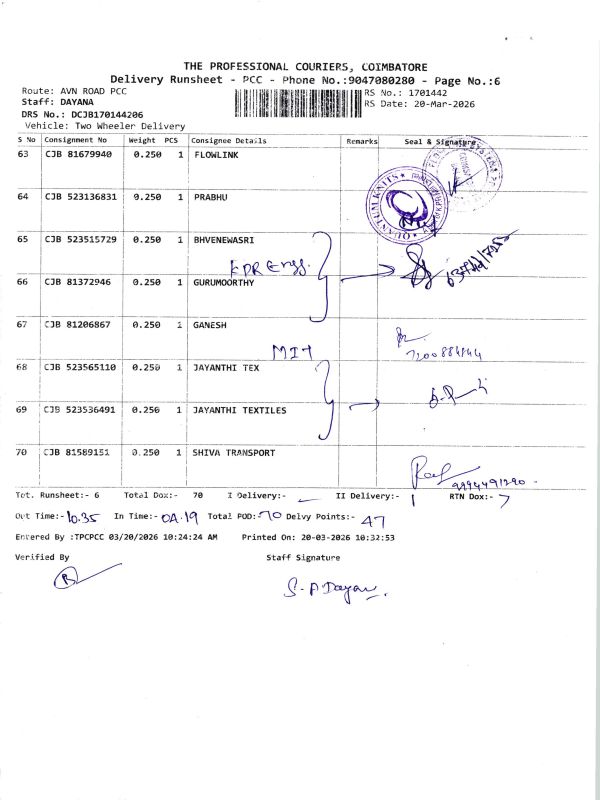 THE PROFESSIONAL COURIERS, COIMBATORE
Delivery Runsheet - PCC - Phone No.:9047080280 - Page No.:6
Route: AVN ROAD PCC
RS No.: 1701442
Staff: DAYANA
RS Date: 20-Mar-2026
DRS No.: DCJB170144206
Vehicle: Two Wheeler Delivery
S No Consignment No Weight PCS Consignee Details Remarks Seal & Signature
63 CJB 81679940 0.250 1 FLOWLINK
64 CJB 523136831 0.250 1 PRABHU
QUANTUM KNITS
65 CJB 523515729 0.250 1 BHVENEWASRI
KPR Engg.
66 CJB 81372946 0.250 1 GURUMOORTHY
67 CJB 81206867 0.250 1 GANESH
MIT
68 CJB 523565110 0.250 1 JAYANTHI TEX
69 CJB 523536491 0.250 1 JAYANTHI TEXTILES
70 CJB 81589151 0.250 1 SHIVA TRANSPORT
9994491290
Tot. Runsheet:- 6 Total Dox:- 70 I Delivery:- II Delivery:- RTN Dox:-
Out Time:- 10.35 In Time:- 04.19 Total POD:- 70 Delvy Points:- 47
Entered By :TPCPCC 03/20/2026 10:24:24 AM Printed On: 20-03-2026 10:32:53
Verified By Staff Signature
S. A Dayana.